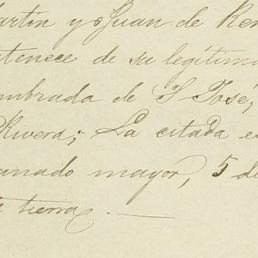 artin y Juan de Ren
tenece de su legítima
ombrada de S José,
Rivera; La citada es
ganado mayor, 5 de
e tierra.